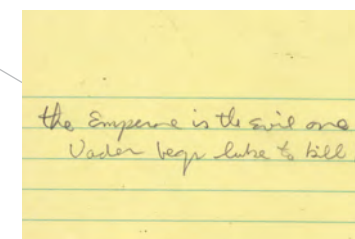 the Emperor is the evil one
Vader begs Luke to kill